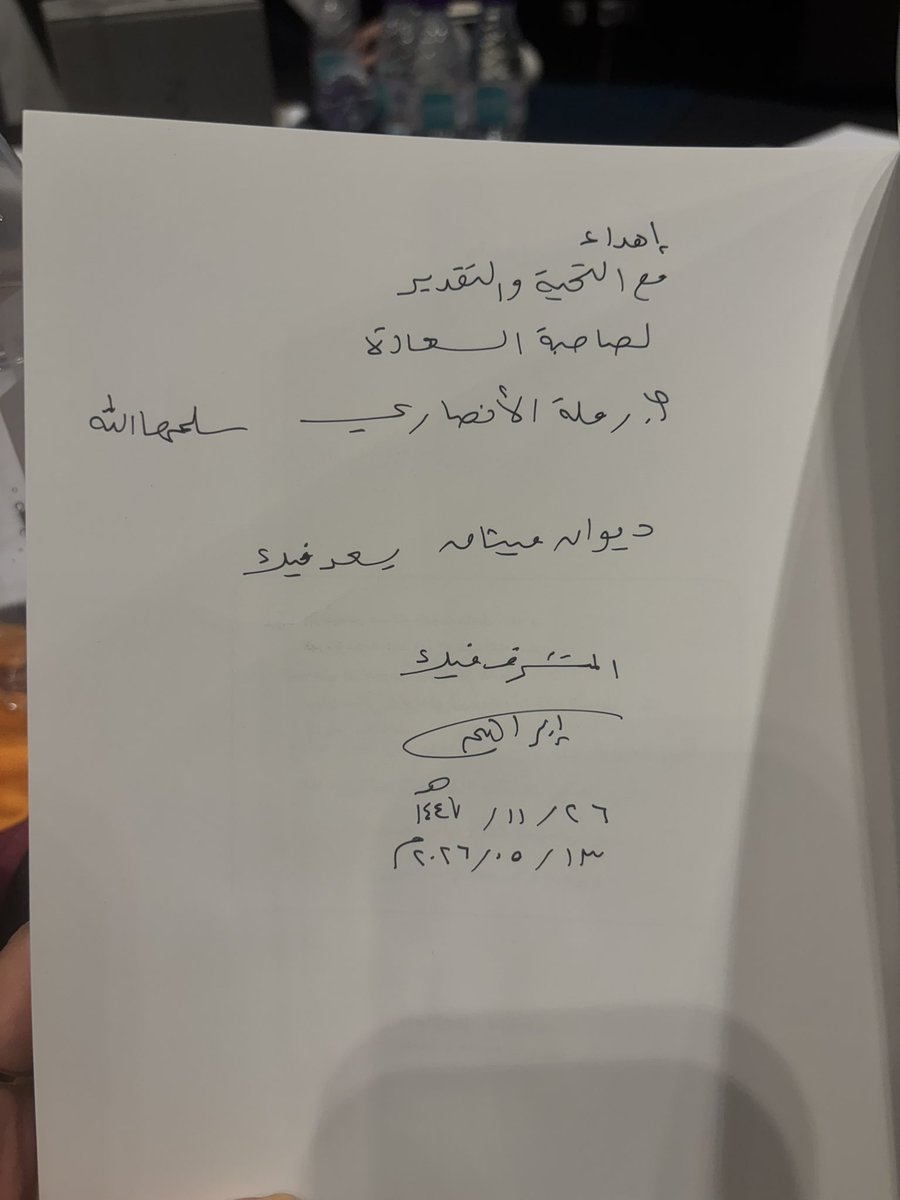 إهداء
مع التحية والتقدير
لصاحبة السعادة
أ. رملة الأنصاري سلمها الله
ديوان ميثاق يسعد فيك
المتشرف فيك
إبراهيم
٢٦/ ١١/ ١٤٤٧هـ
١٣/ ٠٥/ ٢٠٢٦م